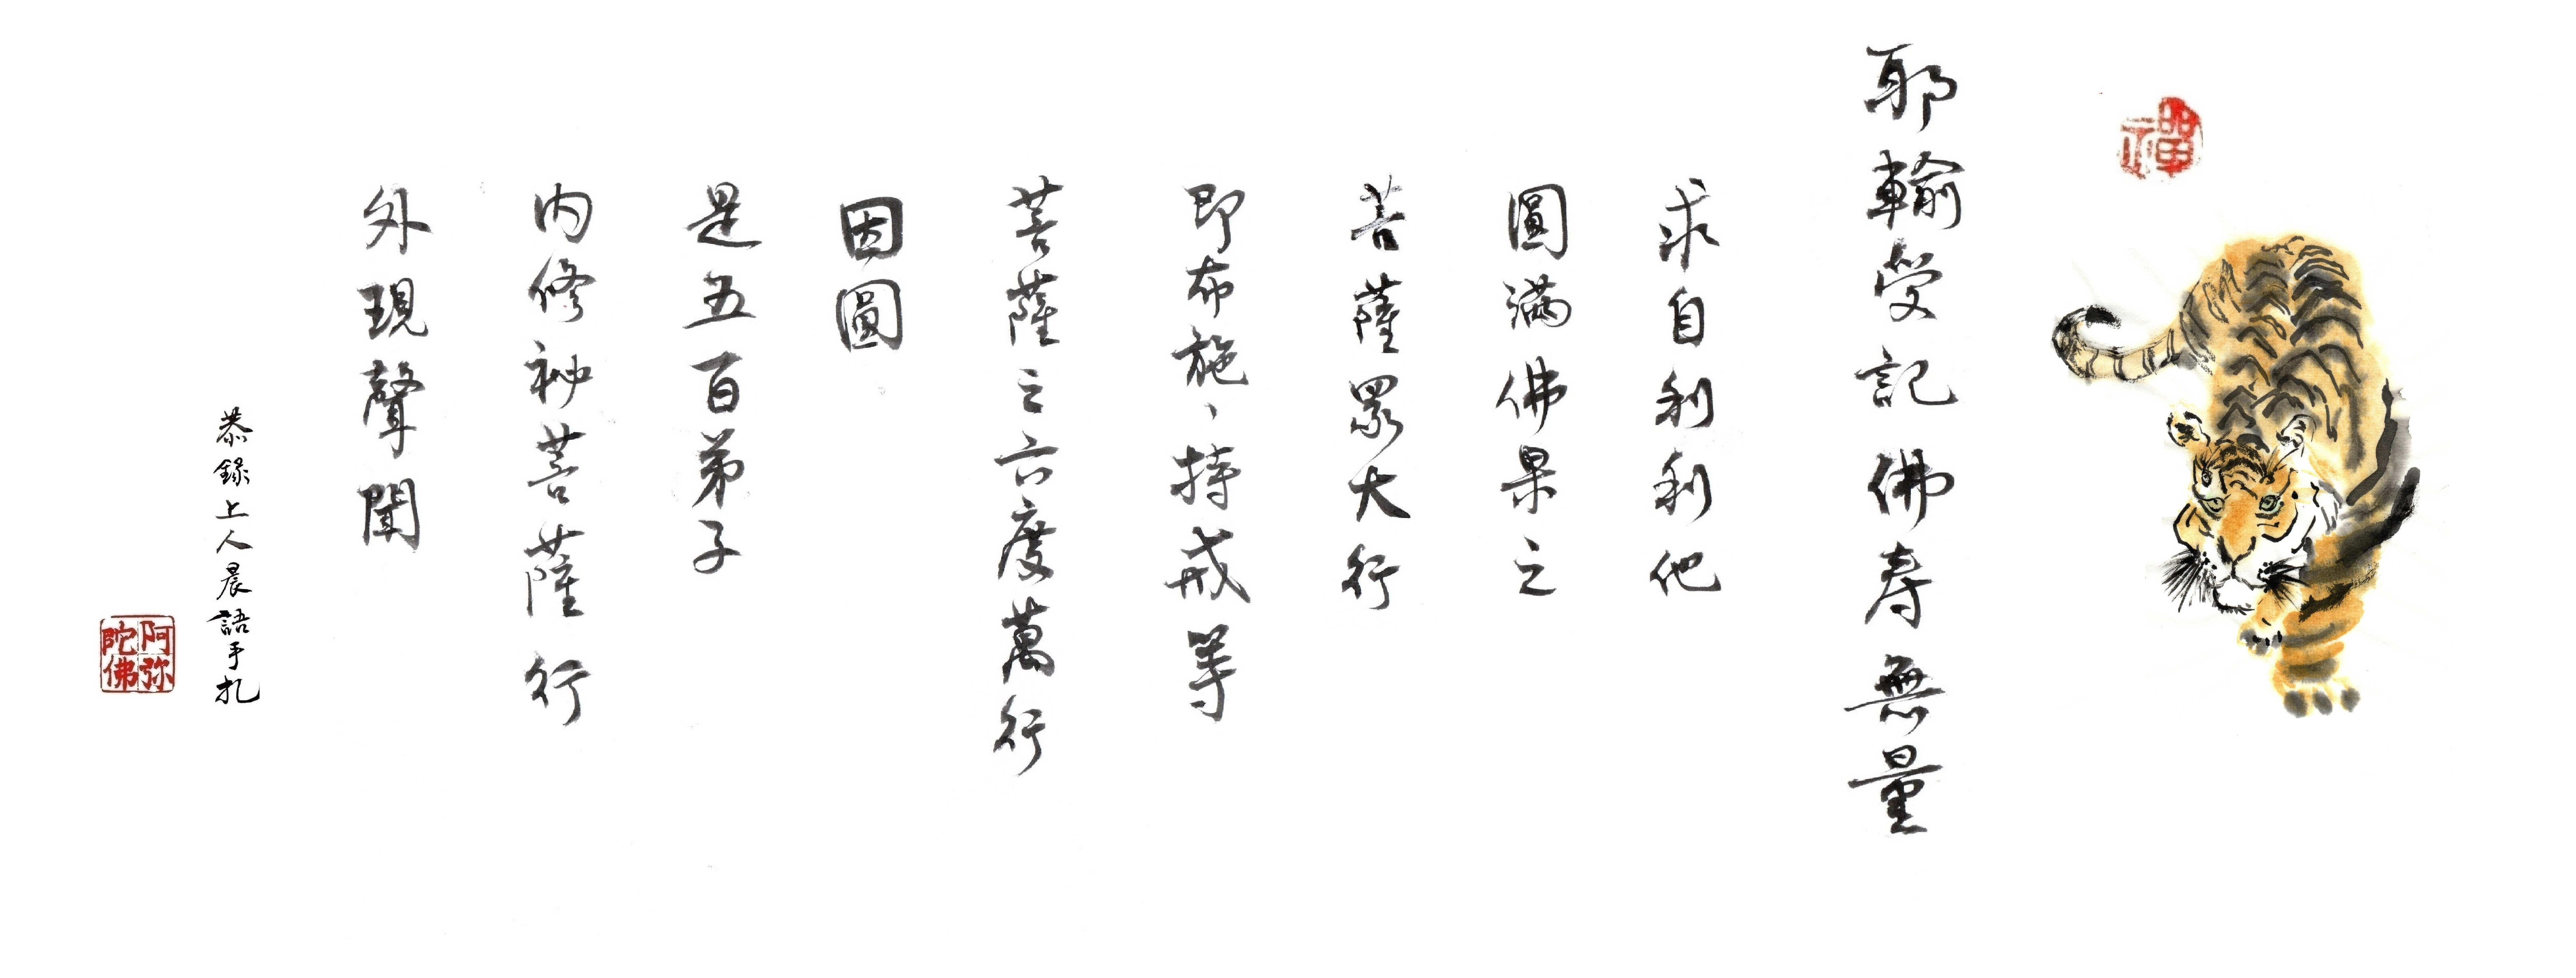 禪
耶輸受記佛壽無量
求自利利他
圓滿佛果之
菩薩眾大行
即布施、持戒等
菩薩之六度萬行
因圓
是五百弟子
內修祕菩薩行
外現聲聞
恭錄上人晨語手札
阿弥
陀佛